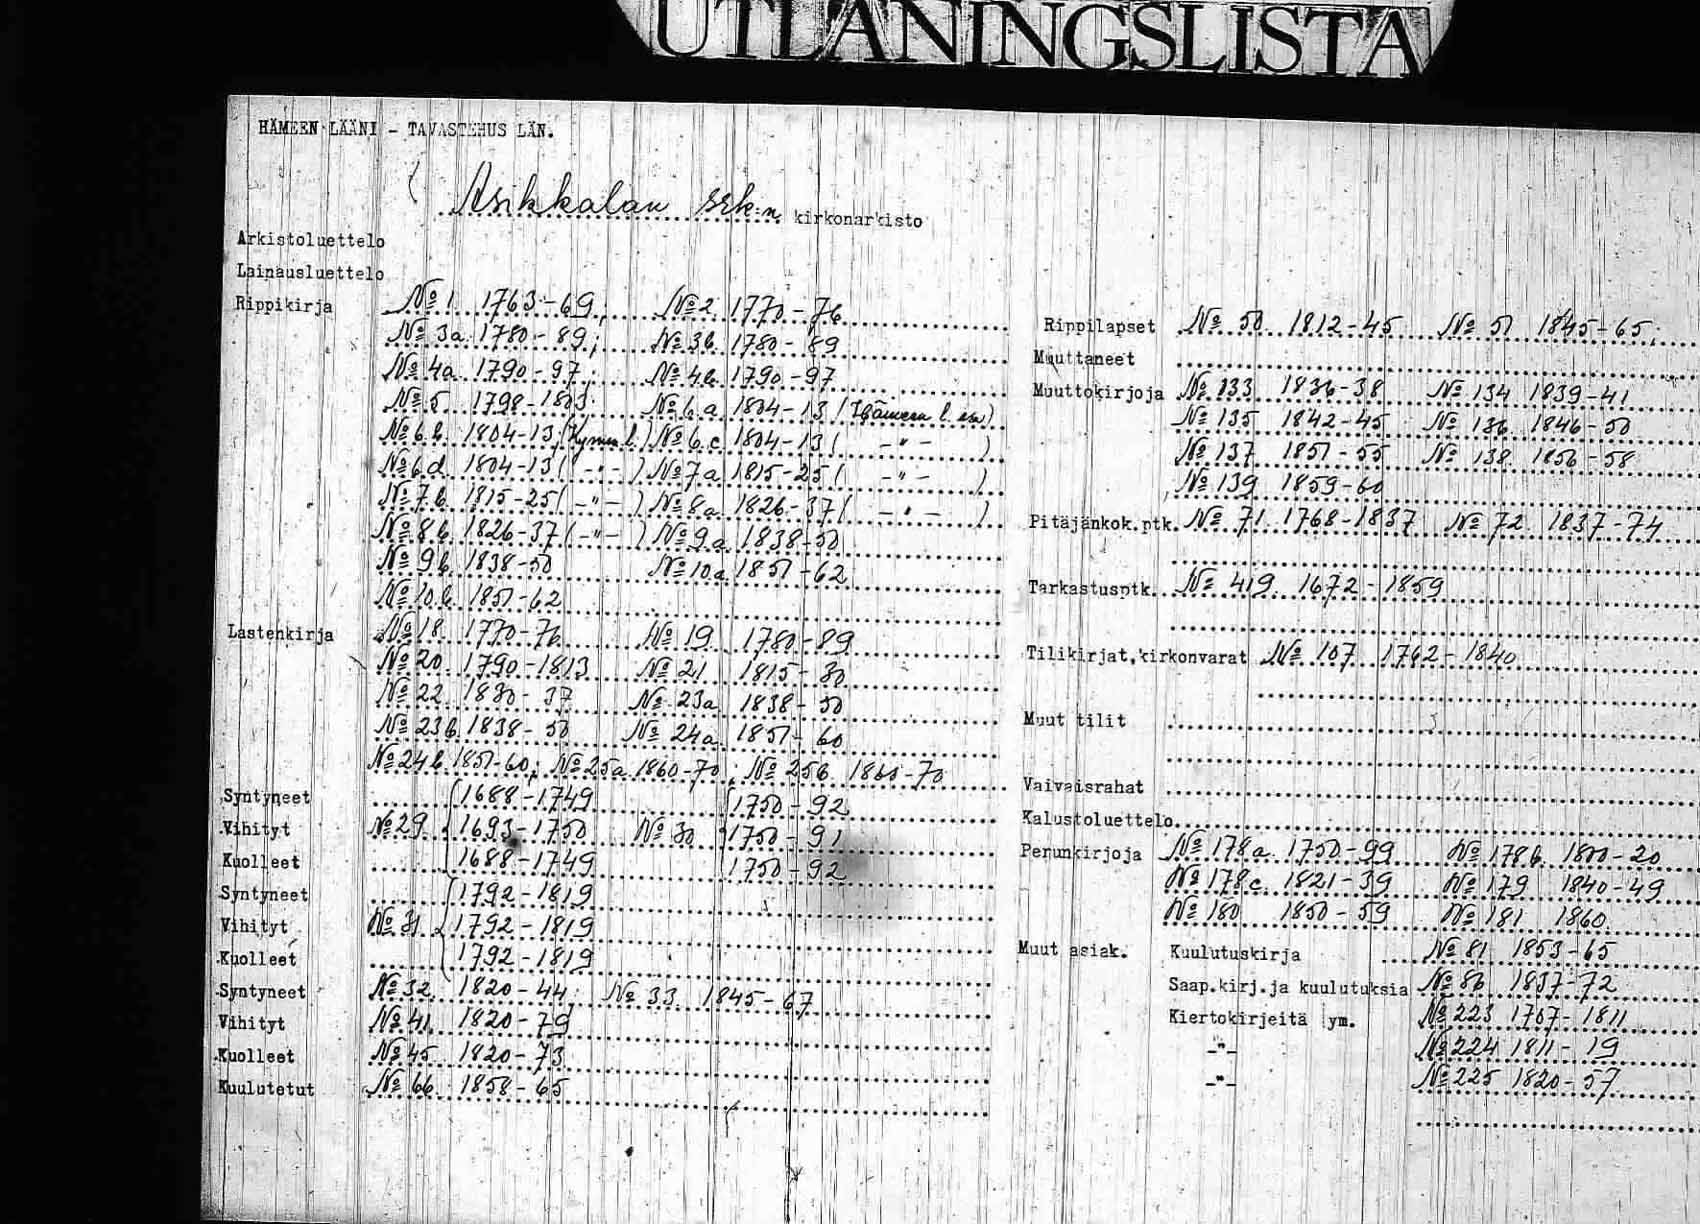 UTLÅNINGSLISTA
HÄMEEN LÄÄNI - TAVASTEHUS LÄN.
Asikkalan srk:n kirkonarkisto
Arkistoluettelo
Lainausluettelo
Rippikirja No 1. 1763-69; No 2. 1770-76
No 3a. 1780-89; No 3b. 1780-89
No 4a. 1790-97; No 4b. 1790-97
No 5. 1798-1803. No 6.a. 1804-13 (Hämeen l. )
No 6.b. 1804-13 (Kymen l.) No 6.c. 1804-13 ( -"- )
No 6.d. 1804-13 ( -"- ) No 7a. 1815-25 ( -"- )
No 7.b. 1815-25 ( -"- ) No 8a. 1826-37 ( -"- )
No 8.b. 1826-37 ( -"- ) No 9.a. 1838-50
No 9b. 1838-50 No 10.a. 1851-62
No 10.b. 1851-62
Lastenkirja No 18. 1770-76 No 19. 1780-89
No 20. 1790-1813 No 21 1815-30
No 22. 1830-37 No 23a 1838-50
No 23b. 1838-50 No 24a. 1851-60
No 24b. 1851-60; No 25a. 1860-70; No 25b. 1860-70
Syntyneet 1688-1749 1750-92
Vihityt No 29. 1693-1750 No 30 1750-91
Kuolleet 1688-1749 1750-92
Syntyneet 1792-1819
Vihityt No 31 1792-1819
Kuolleet 1792-1819
Syntyneet No 32. 1820-44; No 33. 1845-67
Vihityt No 41. 1820-79
Kuolleet No 45. 1820-73
Kuulutetut No 66. 1858-65
Rippilapset No 50. 1812-45 No 51 1845-65;
Muuttaneet
Muuttokirjoja No 133 1836-38 No 134 1839-41
No 135 1842-45 No 136 1846-50
No 137 1851-55 No 138. 1856-58
No 139 1859-60
Pitäjänkok.ptk. No 71. 1768-1837 No 72. 1837-74
Tarkastusptk. No 419. 1672-1859
Tilikirjat,kirkonvarat No 107 1762-1840
Muut tilit
Vaivaisrahat
Kalustoluettelo
Perunkirjoja No 178a. 1750-99 No 178b. 1800-20
No 178c. 1821-39 No 179 1840-49
No 180 1850-59 No 181 1860
Muut asiak. Kuulutuskirja No 81 1853-65
Saap.kirj.ja kuulutuksia No 86 1837-72
Kiertokirjeitä ym. No 223 1707-1811
-"- No 224 1811-19
-"- No 225 1820-57